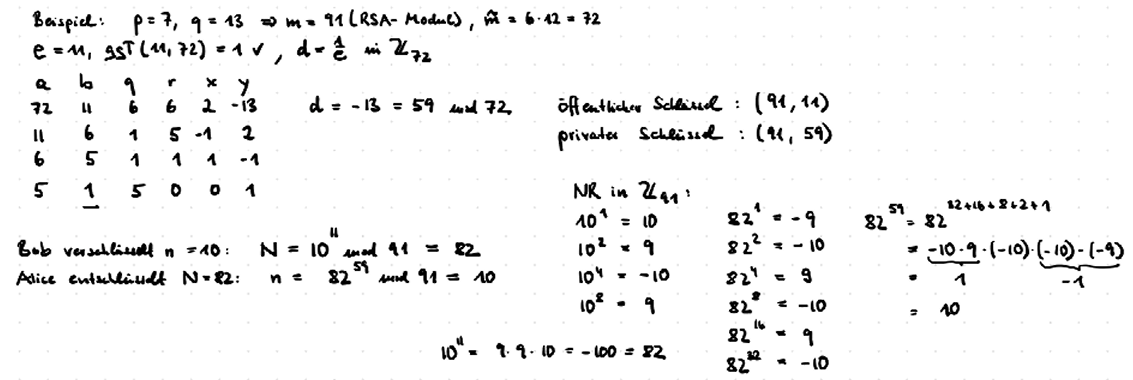 Beispiel: p = 7, q = 13 ⇒ m = 91 (RSA-Modul), m̃ = 6·12 = 72
e = 11, ggT(11, 72) = 1 ✓, d = 1/e in ℤ₇₂
a b q r x y
72 11 6 6 2 -13
11 6 1 5 -1 2
6 5 1 1 1 -1
5 1 5 0 0 1
d = -13 = 59 mod 72
öffentlicher Schlüssel : (91, 11)
privater Schlüssel : (91, 59)
Bob verschlüsselt n = 10: N = 10¹¹ mod 91 = 82
Alice entschlüsselt N = 82: n = 82⁵⁹ mod 91 = 10
NR in ℤ₉₁:
10¹ = 10
10² = 9
10⁴ = -10
10⁸ = 9
10¹¹ = 9·9·10 = -100 = 82
82¹ = -9
82² = -10
82⁴ = 9
82⁸ = -10
82¹⁶ = 9
82³² = -10
82⁵⁹ = 82³²⁺¹⁶⁺⁸⁺²⁺¹
= -10·9·(-10)·(-10)·(-9)
= 1 -1
= 10